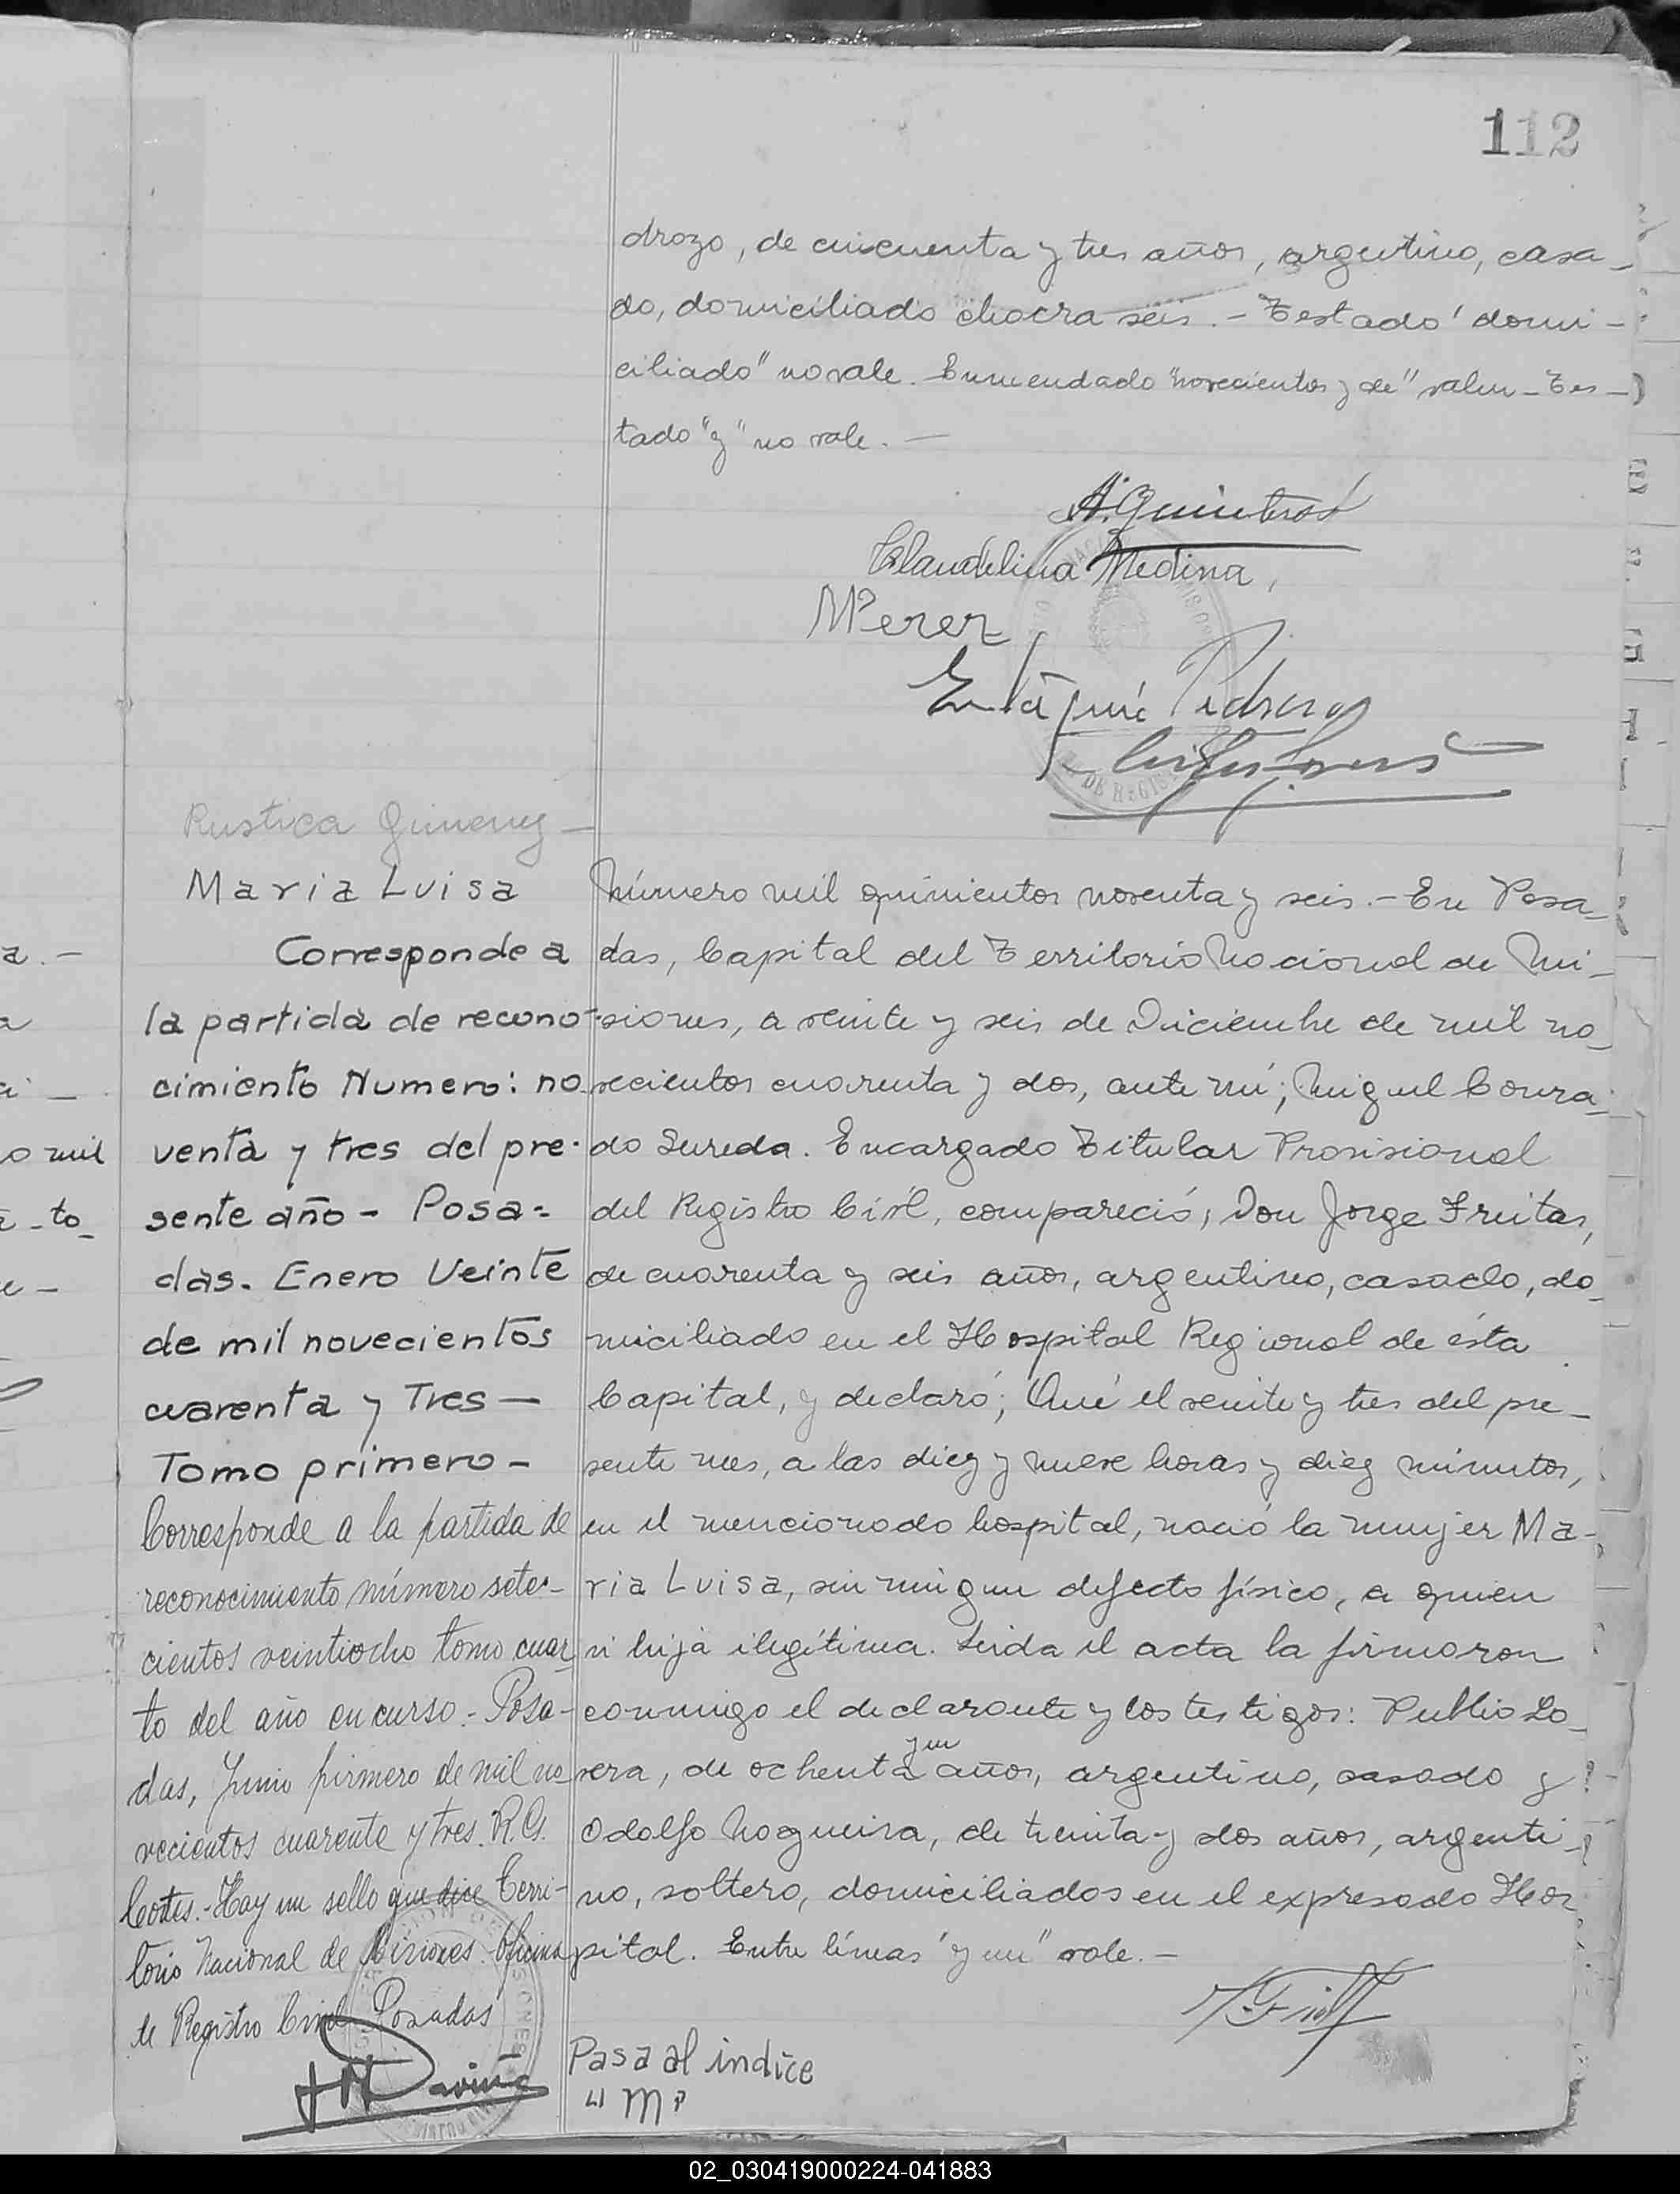 112
drozo, de cincuenta y tres años, argentino, casa-
do, domiciliado chacra seis.- Testado "domi-
ciliado" no vale. Enmendado "novecientos y de" valen- Tes-
tado "y" no vale.-
A. Quinteros
Claudelina Medina,
M Perez
Rustica Gimenez-
Maria Luisa
Corresponde a
la partida de recono-
cimiento Numero: no
venta y tres del pre-
sente año - Posa=
das. Enero Veinte
de mil novecientos
cuarenta y Tres-
Tomo primero-
Corresponde a la partida de
reconocimiento número sete-
cientos veintiocho tomo cuar
to del año en curso.- Posa-
das, Junio pirmero de mil no
vecientos cuarente y tres. R.G.
Cortes.- Hay un sello que dice Terri-
torio Nacional de Misiones. Oficina
de Registro Civil Posadas
Número mil quinientos noventa y seis.- En Posa-
das, Capital del Territorio Nacional de Mi-
siones, a veinte y seis de Diciembre de mil no-
vecientos cuarenta y dos, ante mí; Miguel Conra-
do Sureda. Encargado Titular Provisional
del Registro Civil, compareció, Don Jorge Freitas,
de cuarenta y seis años, argentino, casado, do-
miciliado en el Hospital Regional de ésta
Capital, y declaró; Qué el veinte y tres del pre-
sente mes, a las diez y nueve horas y diez minutos,
en el mencionado hospital, nació la mujer Ma-
ria Luisa, sin ningun defecto físico, a quien
vi hija ilegítima. Leida el acta la firmaron
conmigo el declarante y los testigos: Publio Lo-
vera, de ochenta y un años, argentino, casado y
Odolfo Nogueira, de treinta y dos años, argenti-
no, soltero, domiciliados en el expresado Hos
pital. Entre líneas "y un" vale.-
Pasa al indice
02_030419000224-041883